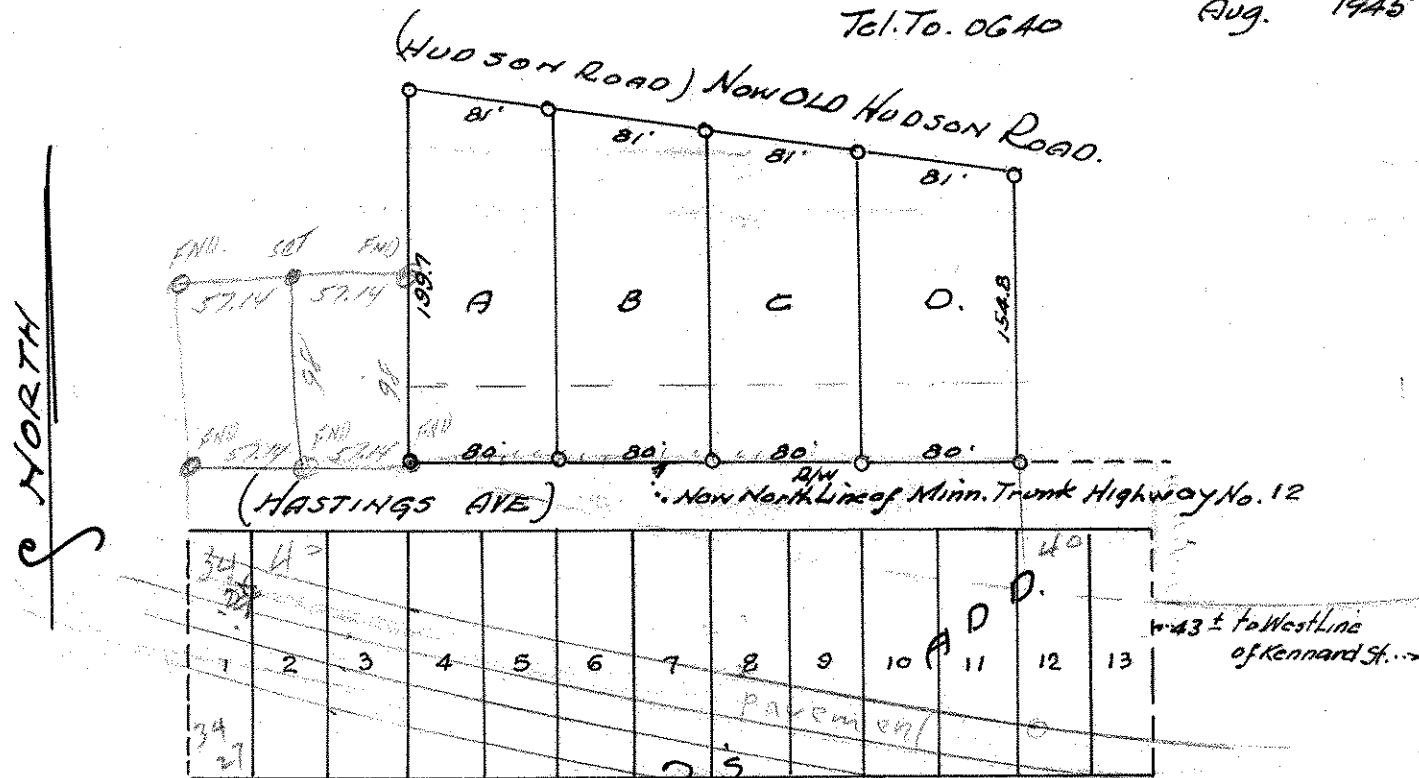 Tel. To. 0640 Aug. 1945
(HUDSON ROAD) NOW OLD HUDSON ROAD.
81' 81' 81' 81'
NORTH
FND. SET FND
57.14 57.14
199.7 A B C D. 154.8
98 98
FND 57.14 FND 57.14 FND
80' 80' 80' 80'
R/W
(HASTINGS AVE) Now North Line of Minn. Trunk Highway No. 12
34 40 40
A D D.
43 ± to West Line
of Kennard St.
1 2 3 4 5 6 7 8 9 10 11 12 13
Pavement
34
27
S